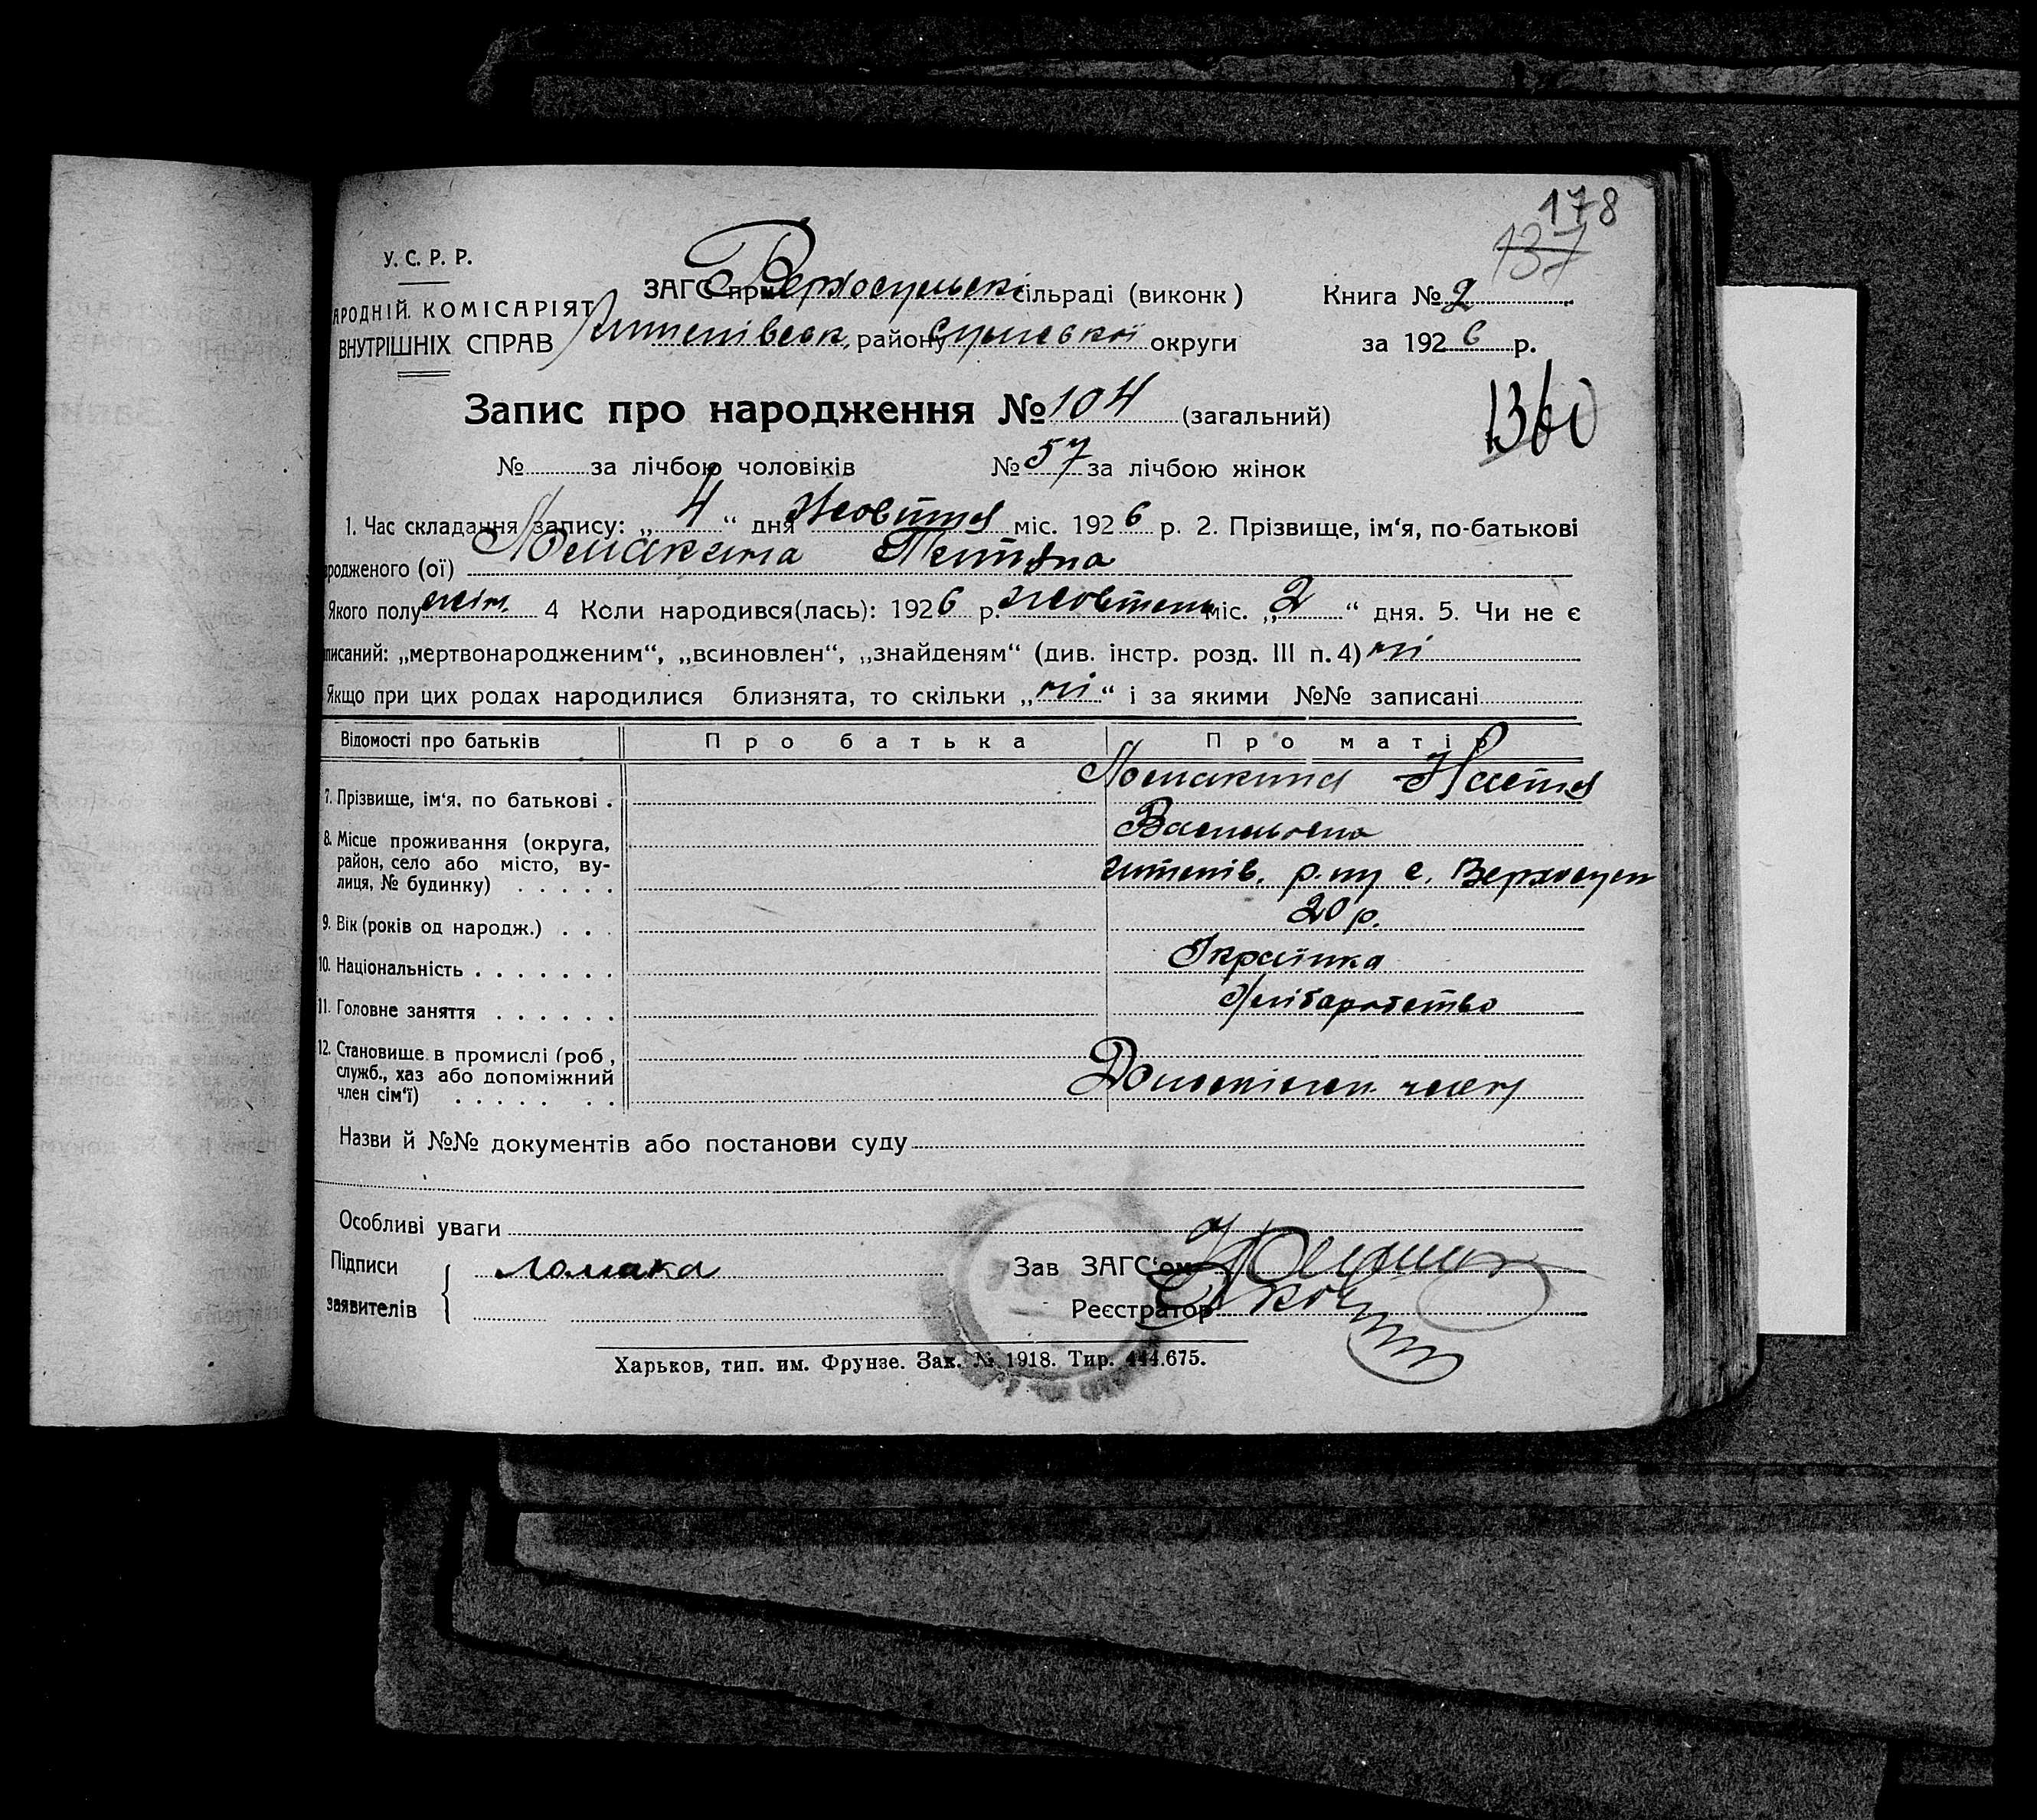 178
137
У. С. Р. Р.
НАРОДНІЙ КОМІСАРІЯТ
ВНУТРІШНІХ СПРАВ
ЗАГС при Верхосульскі сільраді (виконк)
Штепівськ. району Сумської округи
Книга № 2
за 1926 р.
1360
Запис про народження № 104 (загальний)
№ за лічбою чоловіків № 57 за лічбою жінок
1. Час складання запису: „4“ дня Жовтня міс. 1926 р. 2. Прізвище, ім‘я, по-батькові
родженого (ої) Ломакина Тетяна
Якого полу жін. 4 Коли народився(лась): 1926 р. жовтень міс. „2“ дня. 5. Чи не є
писаний: „мертвонародженим“, „всиновлен“, „знайденям“ (див. інстр. розд. III п. 4) ні
Якщо при цих родах народилися близнята, то скільки „ні“ і за якими №№ записані
Відомості про батьків Про батька Про матір
7. Прізвище, ім‘я, по батькові . Ломакина Настя
Васильовна
8. Місце проживання (округа,
район, село або місто, ву-
лиця, № будинку) . . . . . Штепів. р-ну с. Верхосул
9. Вік (років од народж.) . . . 20 р.
10. Національність . . . . . . . Українка
11. Головне заняття . . . . . . Хліборобство
12. Становище в промислі (роб,
служб., хаз або допоміжний
член сім‘ї) . . . . . . .
Назви й №№ документів або постанови суду
Особливі уваги
Підписи
заявителів
Ломака
Зав ЗАГС‘ом
Реєстратор
Харьков, тип. им. Фрунзе. Зак. № 1918. Тир. 444.675.